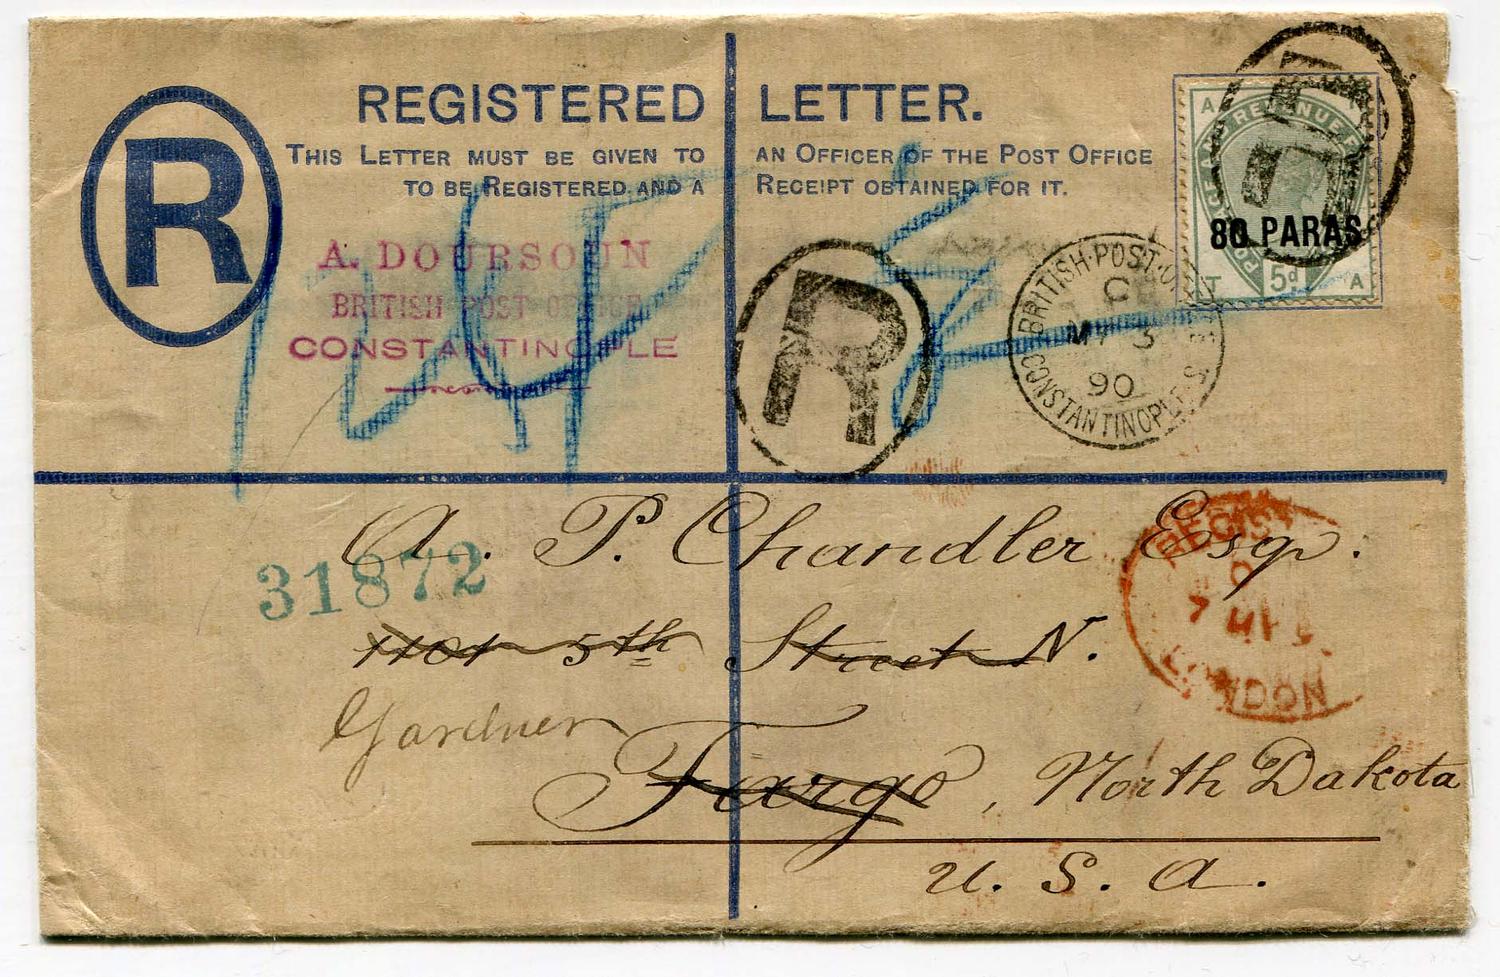 REGISTERED LETTER.
THIS LETTER MUST BE GIVEN TO AN OFFICER OF THE POST OFFICE
TO BE REGISTERED AND A RECEIPT OBTAINED FOR IT.
R
A. DOURSOUN
BRITISH POST OFFICE
CONSTANTINOPLE
R
BRITISH·POST·OFFICE
C
MY 3
90
CONSTANTINOPLE
POSTAGE & REVENUE
A T
80 PARAS
T 5d A
R
A. P. Chandler Esqr.
31872
5th Street N.
Gardner
Fargo, North Dakota
U. S. A.
REGIST
7 MY
LONDON